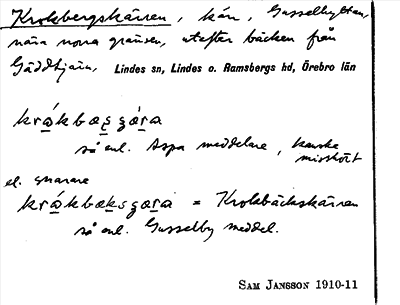 Krokbergskärren, kärr, Gusselbyltan,
nära norra gränsen, utefter bäcken från
Gäddtjärn, Lindes sn, Lindes o. Ramsbergs hd, Örebro län
krǻkbæs̨ʒæ̨ra
så enl. Aspa meddelare, kanske
misshört
el. snarare
krǻkbæksʒæra = Krokbäckskärren
så enl. Gusselby meddel.
SAM JANSSON 1910-11